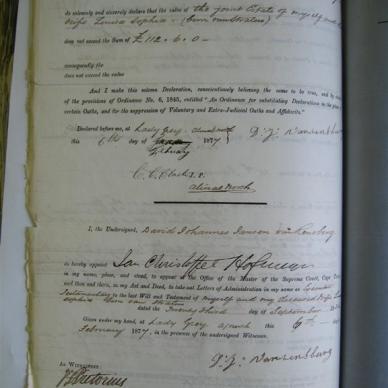 do solemnly and sincerely declare that the value of the joint Estate of myself and
wife Louisa Sophia (born van Straten)
does not exceed the Sum of £112.6.0 –
consequently the
does not exceed the value
And I make this solemn Declaration, conscientiously believing the same to be true, and by
of the provisions of Ordinance No. 6, 1845, entitled "An Ordinance for substituting Declarations in the place
certain Oaths, and for the suppression of Voluntary and Extra-Judicial Oaths and Affidavits."
Declared before me, at Lady Grey
this 6th day of 1877
February
Aliwal North
I, the Undersigned, David Johannes Janson van
do hereby appoint Jan Christoffel Hofmeyr
in my name, place, and stead, to appear at the Office of the Master of the Supreme Court, Cape
and then and there, as my Act and Deed, to take out Letters of Administration in my name as Executor
Testamentary to the last Will and Testament of myself and my deceased Wife
Sophia born van Straten
dated the Twenty Third day of September
Given under my hand, at Lady Grey this 6th
February 1877, in the presence of the undersigned Witnesses.
As Witnesses: